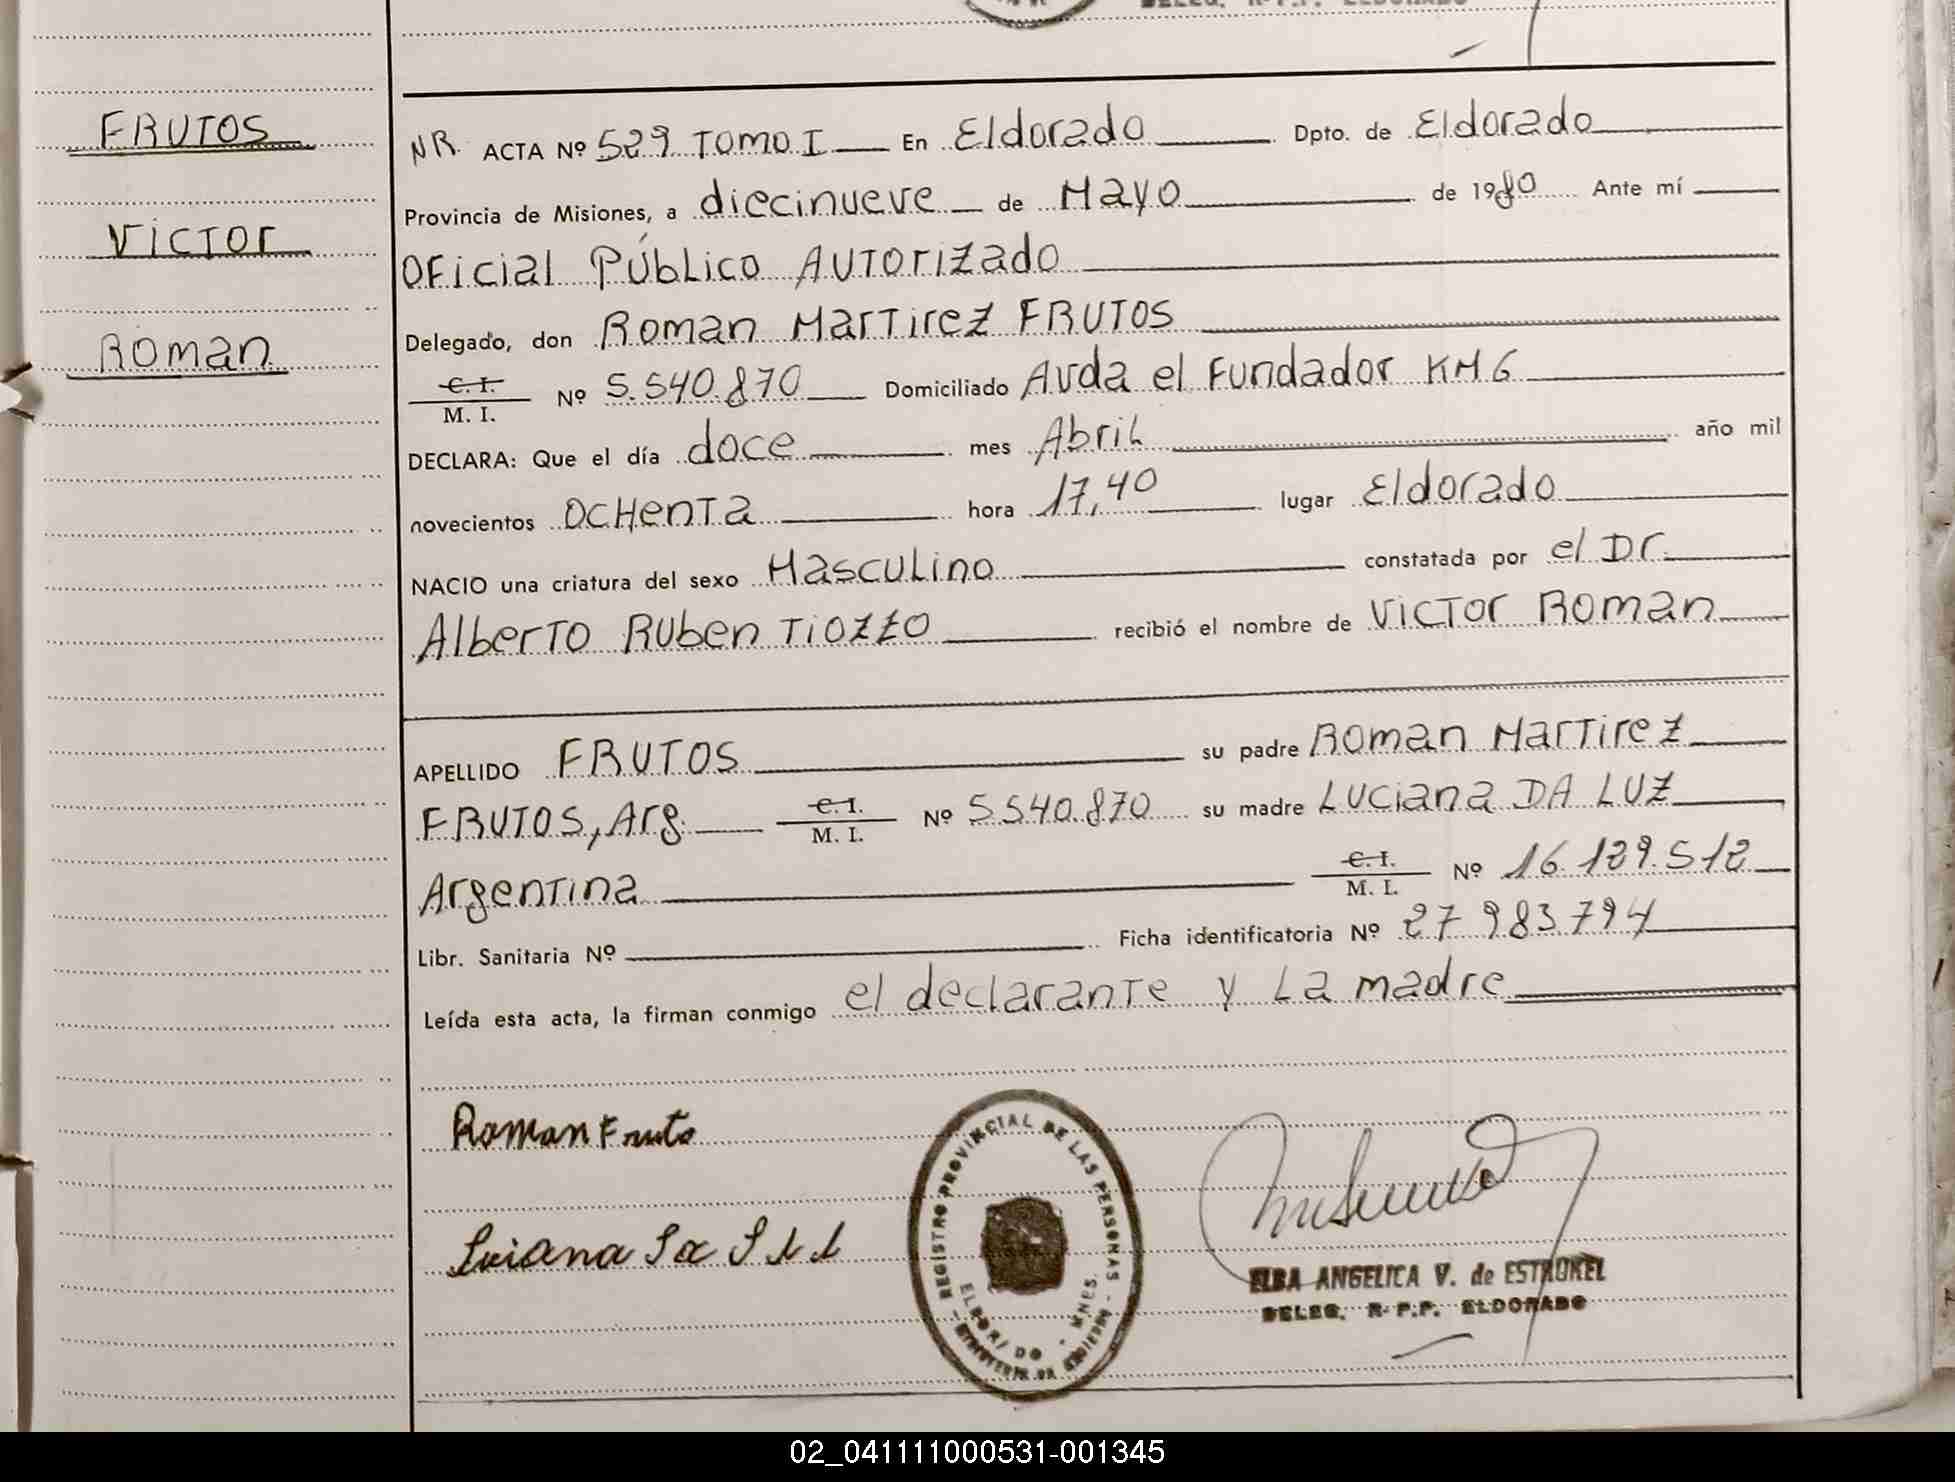 DELEG. R. P.P. ELDORADO
FRUTOS
VICTOR
ROMAN
NR. ACTA Nº 529 TOMO I En Eldorado Dpto. de Eldorado
Provincia de Misiones, a diecinueve de Mayo de 1980 Ante mí
Oficial Público Autorizado
Delegado, don Roman Martirez FRUTOS
C. I.
M. I. Nº 5.540.870 Domiciliado Avda el Fundador KM 6
DECLARA: Que el día doce mes Abril año mil
novecientos ochenta hora 17,40 lugar Eldorado
NACIO una criatura del sexo Masculino constatada por el Dr.
Alberto Ruben Tiozzo recibió el nombre de Victor Roman
APELLIDO FRUTOS su padre Roman Martirez
FRUTOS, Arg. C. I. M. I. Nº 5.540.870 su madre Luciana DA LUZ
Argentina C. I. M. I. Nº 16.129.512
Libr. Sanitaria Nº Ficha identificatoria Nº 27 983.794
Leída esta acta, la firman conmigo el declarante y la madre
Roman Fruto
REGISTRO PROVINCIAL DE LAS PERSONAS
ELDORADO - MNES.
ELBA ANGELICA V. de ESTRUKEL
DELEG. R. P.P. ELDORADO
02_041111000531-001345